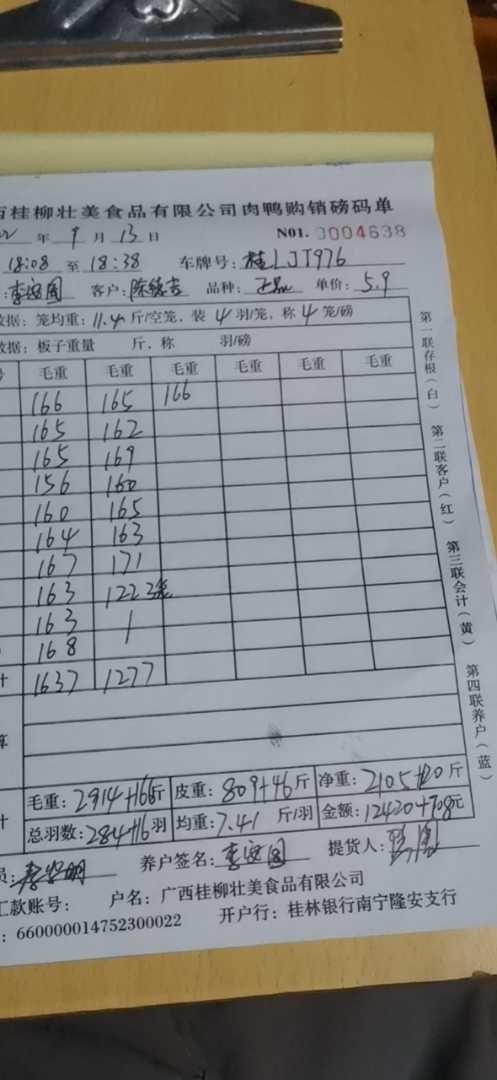 西桂柳壮美食品有限公司肉鸭购销磅码单
年 9 月 13 日 N01. 0004638
18:08 至 18:38 车牌号: 桂LJT976
客户: 陈 品种: 正品 单价: 5.9
数据: 笼均重: 11.4 斤/空笼, 装 4 羽/笼, 称 4 笼/磅
数据: 板子重量 斤, 称 羽/磅
号 毛重 毛重 毛重 毛重 毛重 毛重
166 165 166
165 162
165 169
156 160
160 165
164 163
167 171
163 122 3笼
163 1
168
计 1637 1277
算
毛重: 2914+166斤 皮重: 809+46斤 净重: 2105+120斤
计 总羽数: 284+16羽 均重: 7.41 斤/羽 金额: 12420+708元
员: 养户签名: 李 提货人:
汇款账号: 户名: 广西桂柳壮美食品有限公司
: 660000014752300022 开户行: 桂林银行南宁隆安支行
第一联存根(白)
第二联客户(红)
第三联会计(黄)
第四联养户(蓝)